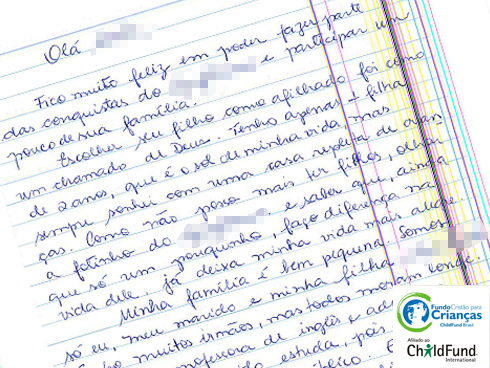 Olá
Fico muito feliz em poder fazer parte
das conquistas do e participar um
pouco de sua família.
Escolher seu filho como afilhado foi como
um chamado de Deus. Tenho apenas 1 filha
de 2 anos, que é o sol de minha vida, mas
sempre sonhei com uma casa repleta de crian
ças. Como não posso mais ter filhos, olhar
a fotinho do e saber que, ainda
que só um pouquinho, faço diferença na
vida dele, já deixa minha vida mais alegre.
Minha família é bem pequena. Somos
só eu, meu marido e minha filha
ho muitos irmãos, mas todos moram longe.
professora de inglês e ad
do estuda, pois
público. E
Fundo Cristão para
Crianças
ChildFund Brasil
Afiliado ao
ChildFund
International